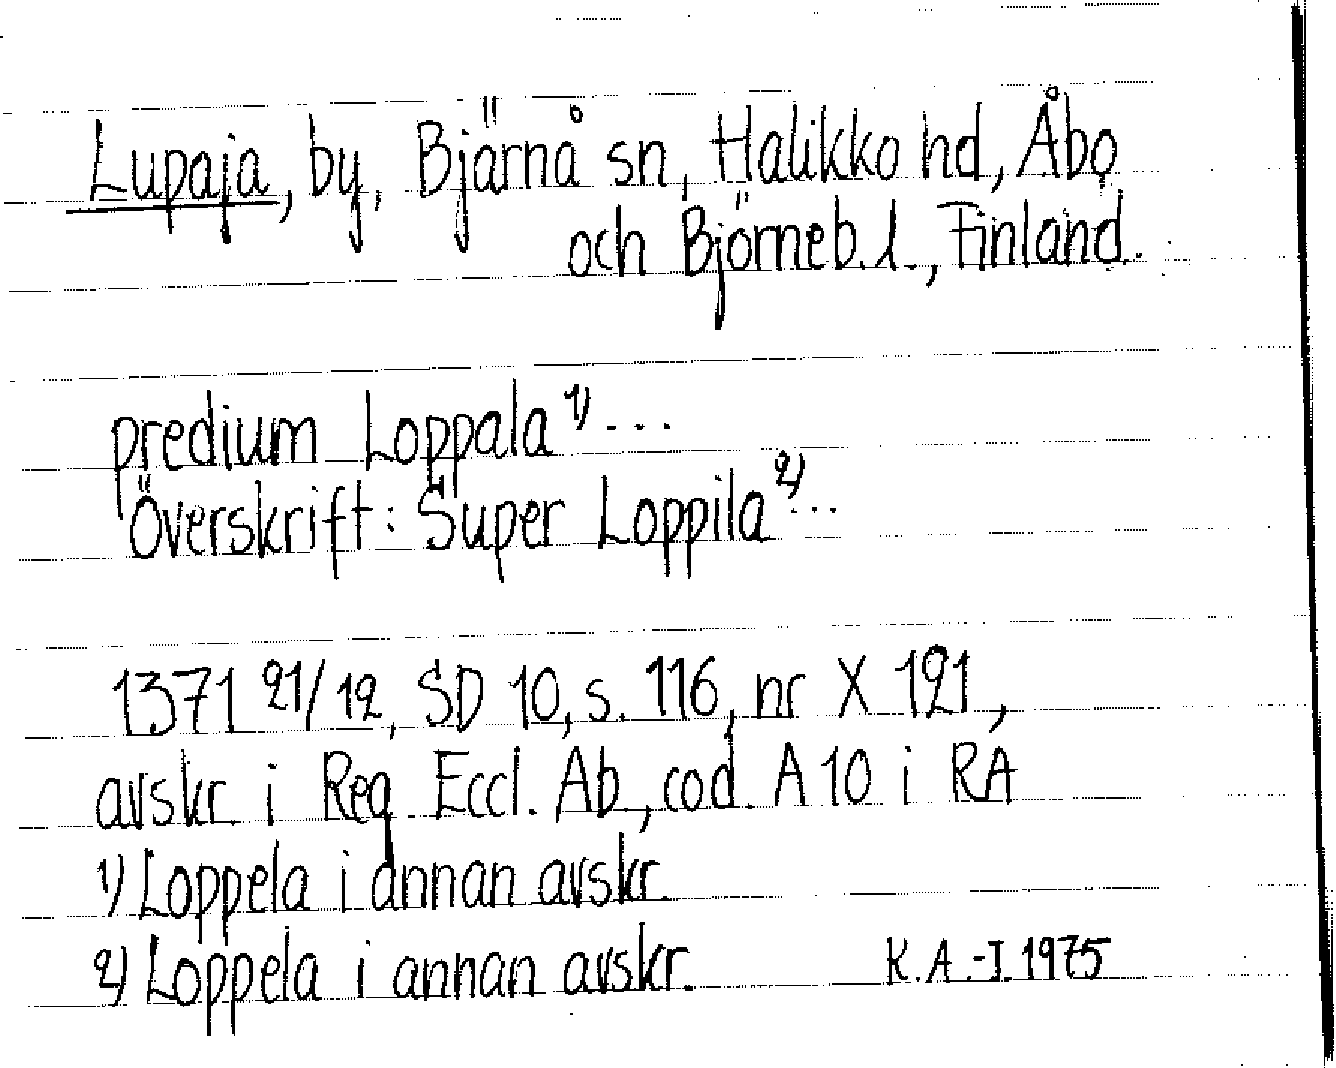 Lupaja, by, Bjärnå sn, Halikko hd, Åbo
och Björneb. l., Finland.
predium Loppala 1) ...
Överskrift: Super Loppila 2) ...
1371 21/12, SD 10, s. 116, nr X 121,
avskr. i Reg. Eccl. Ab., cod. A 10 i RA
1) Loppela i annan avskr.
2) Loppela i annan avskr. K.A.-I. 1975